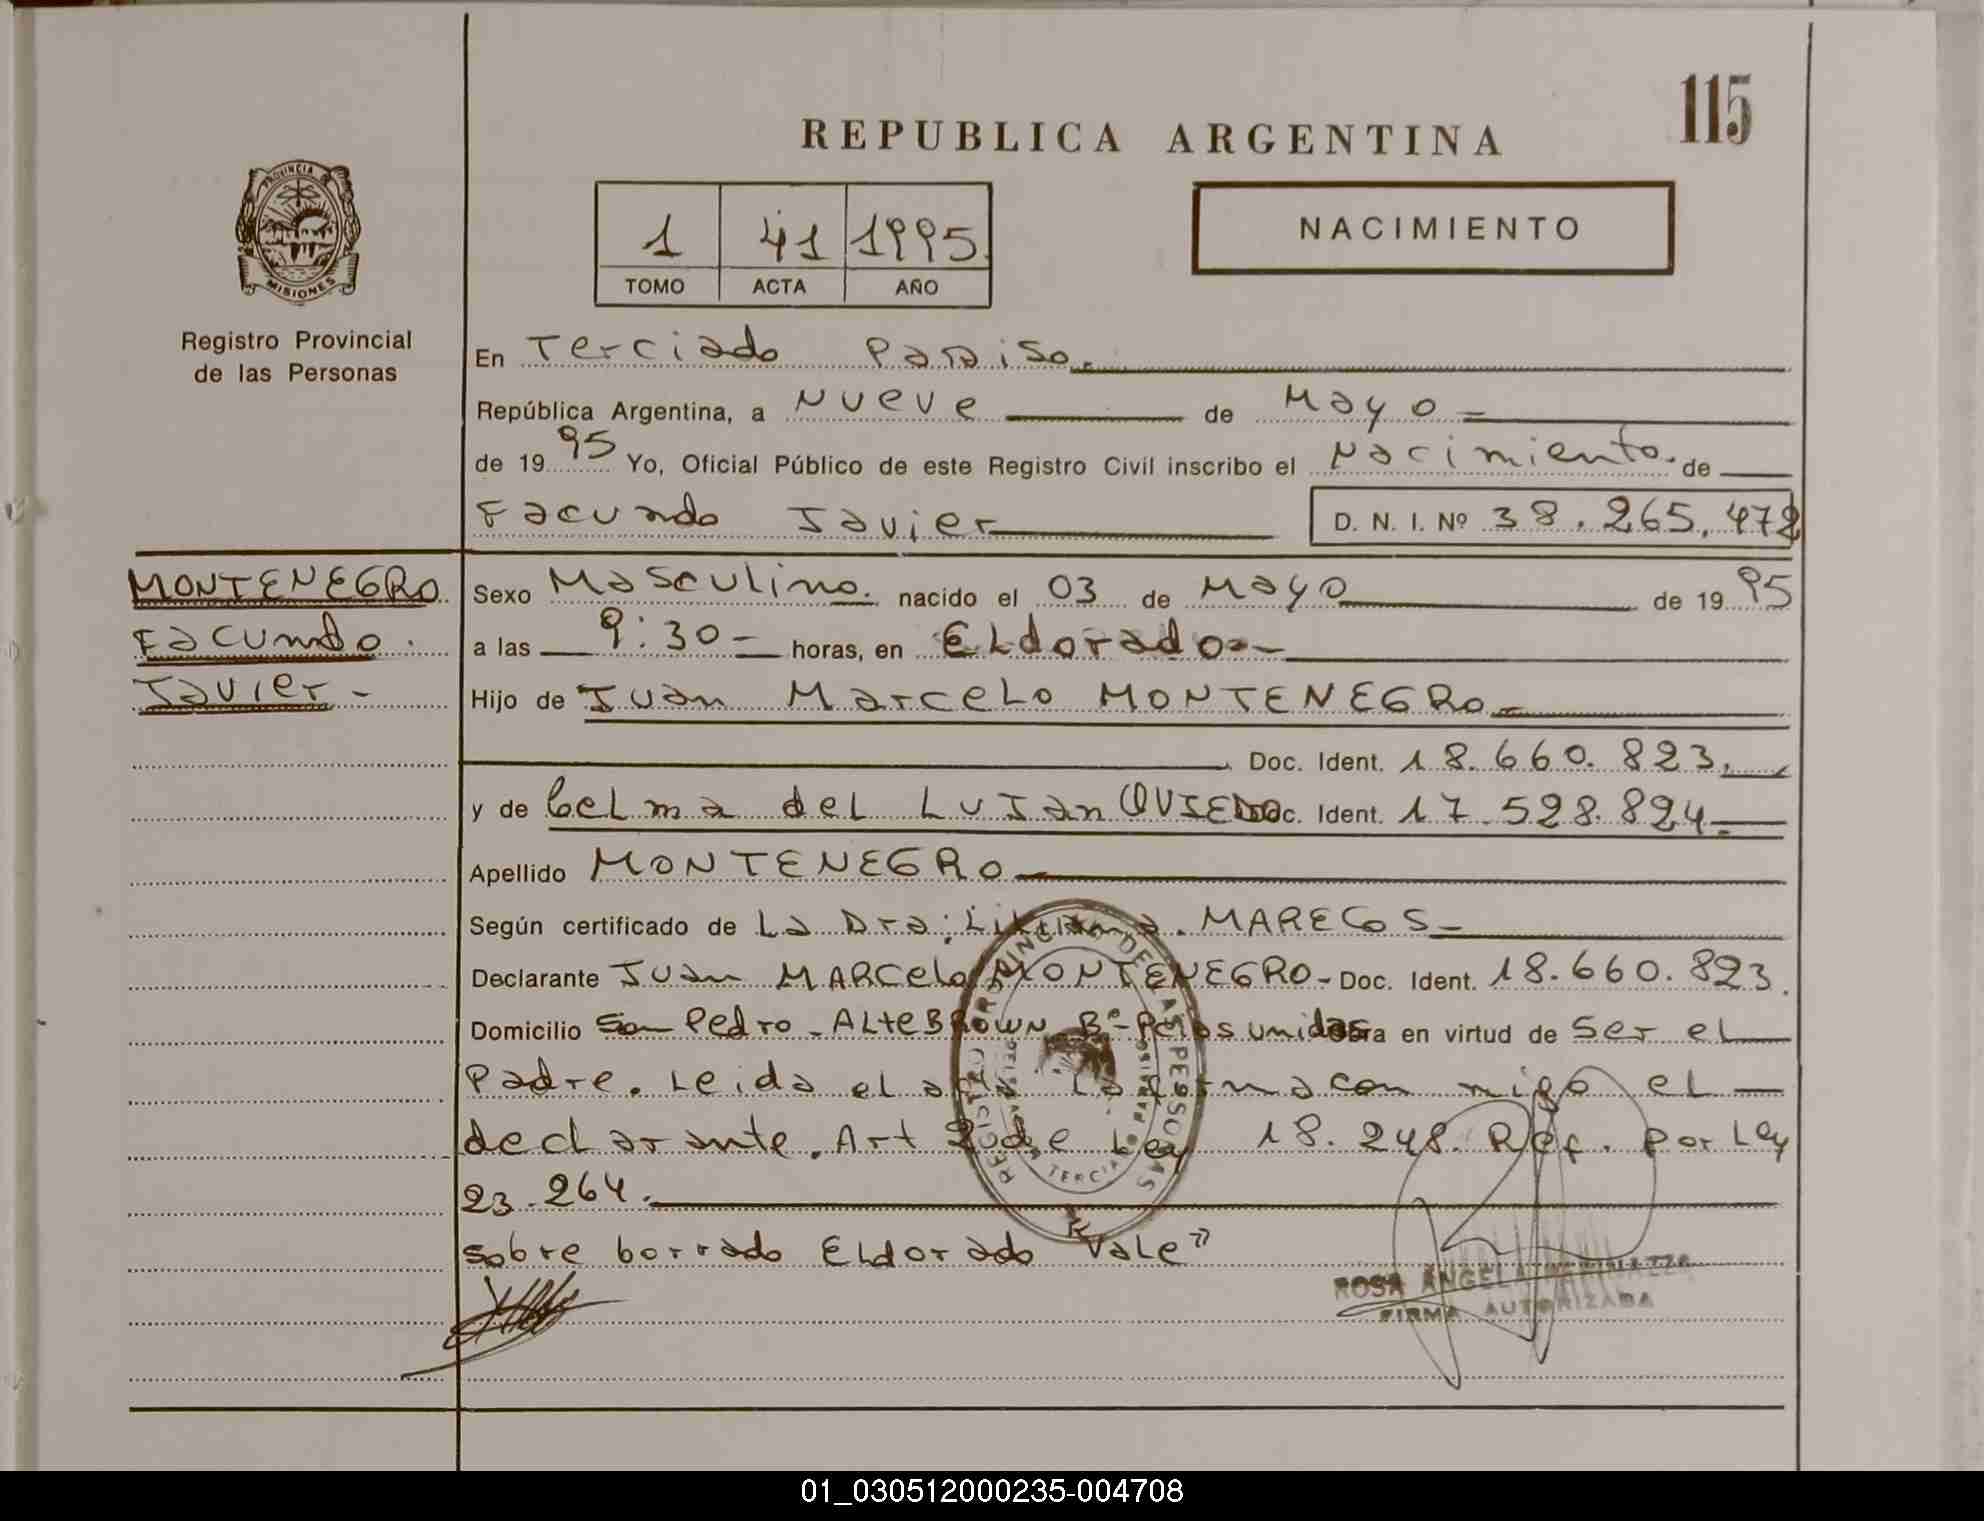 115
REPUBLICA ARGENTINA
PROVINCIA DE
MISIONES
1 41 1995
TOMO ACTA AÑO
NACIMIENTO
Registro Provincial
de las Personas
En Terciado Paraiso.
República Argentina, a Nueve de Mayo
de 1995 Yo, Oficial Público de este Registro Civil inscribo el Nacimiento. de
Facundo Javier D. N. I. Nº 38.265.472
MONTENEGRO
Facundo.
Javier -
Sexo Masculino. nacido el 03 de Mayo de 1995
a las 9:30- horas, en ELdorado-
Hijo de Juan MarceLo MONTENEGRO
Doc. Ident. 18.660.823.
y de CeLma deL LuJan OVIEDO Doc. Ident. 17.528.824
Apellido MONTENEGRO
Según certificado de La Dra. Liliana. MARECOS
Declarante Juan MARCeLo MONTENEGRO- Doc. Ident. 18.660.823.
Domicilio San Pedro - ALteBROWN Bº- unidos en virtud de Ser eL
Padre. Leida eL con migo eL
decLarante. Art 2 de Ley 18.248. Ref. Por Ley
23.264.
sobre borrado ELdorado VaLe"
REGISTRO PROVINCIAL DE LAS PERSONAS
ROSA ANGELA
FIRMA AUTORIZADA
01_030512000235-004708